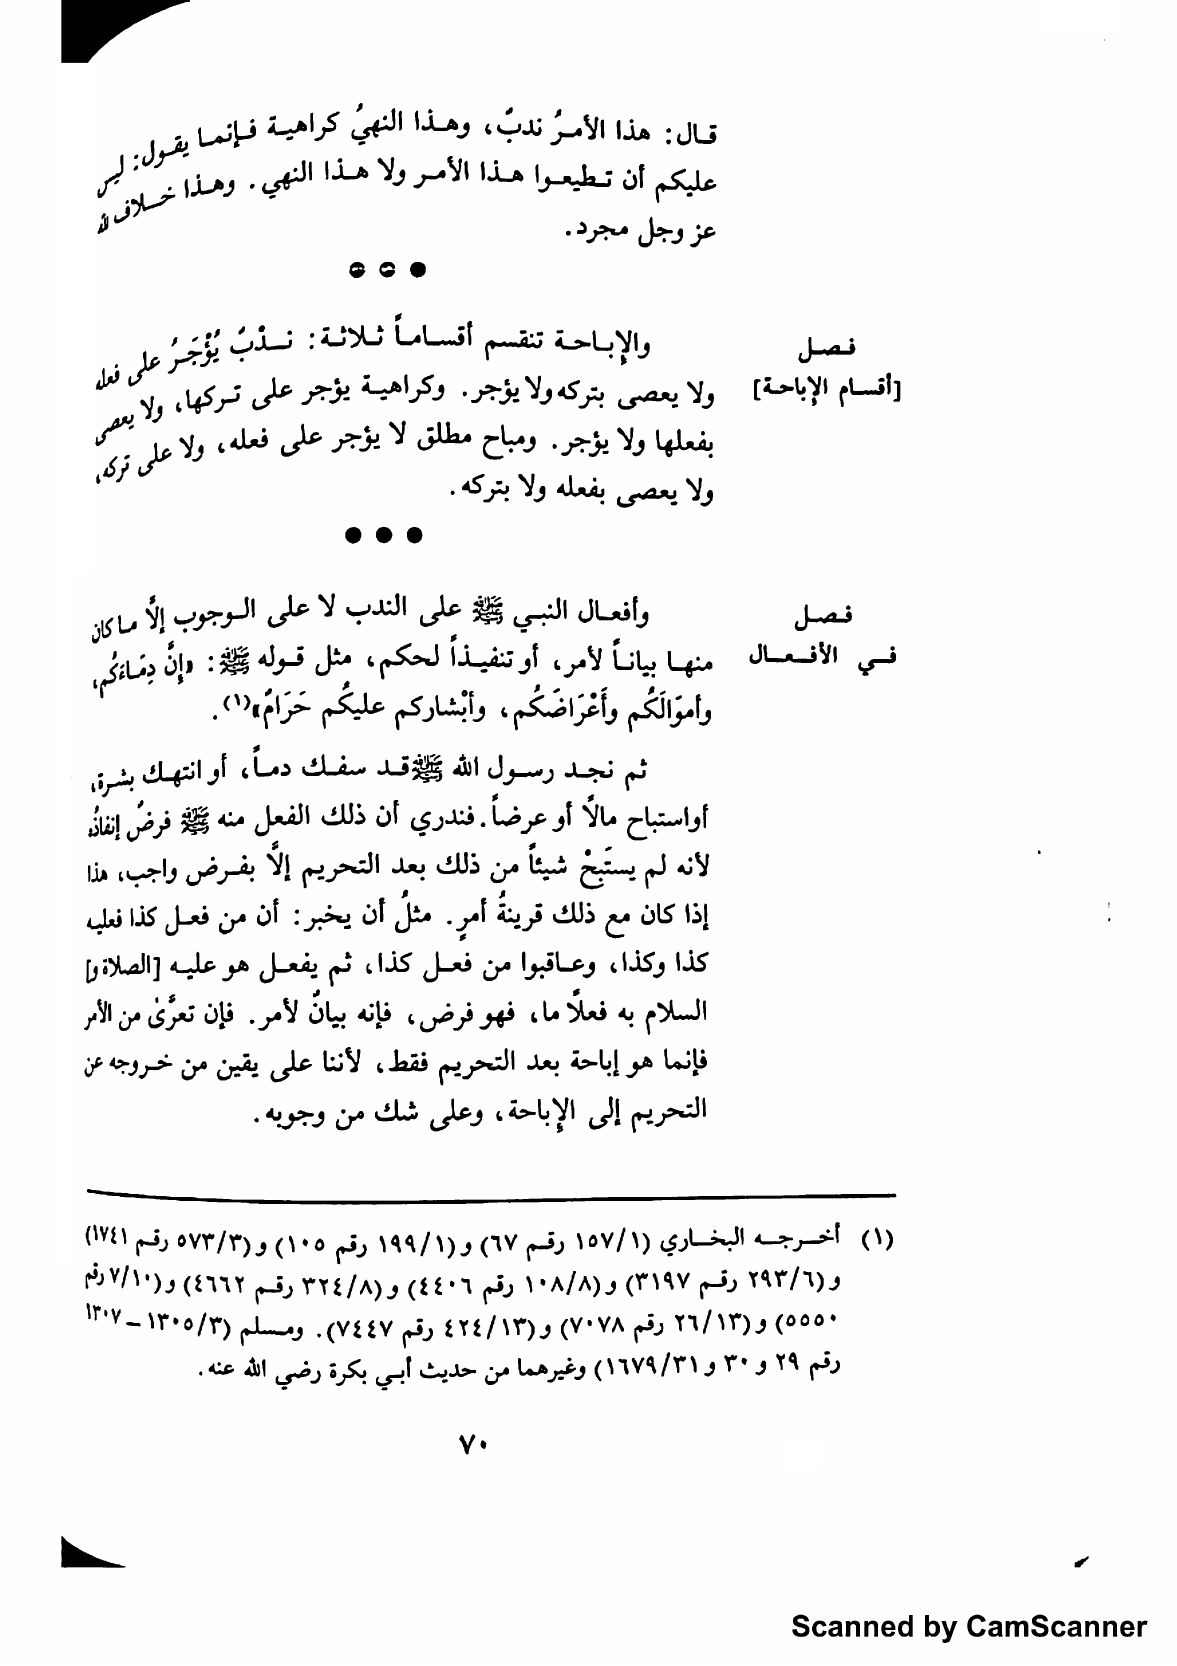 قال: هذا الأمرُ ندبٌ، وهذا النهيُ كراهية فإنما يقول: ليس
عليكم أن تطيعوا هذا الأمر ولا هذا النهي. وهذا خلاف لله
عز وجل مجرد.
فصل
[أقسام الإباحة]
والإباحة تنقسم أقساماً ثلاثة: نَدْبٌ يُؤْجَرُ على فعله
ولا يعصى بتركه ولا يؤجر. وكراهية يؤجر على تركها، ولا يعصى
بفعلها ولا يؤجر. ومباح مطلق لا يؤجر على فعله، ولا على تركه،
ولا يعصى بفعله ولا بتركه.
فصل
في الأفعال
وأفعال النبي ﷺ على الندب لا على الوجوب إلَّا ما كان
منها بياناً لأمر، أو تنفيذاً لحكم، مثل قوله ﷺ: «إنَّ دِمَاءَكُم،
وأموَالَكُم وأَعْرَاضَكُم، وأبْشاركم عليكُم حَرَامٌ»(١).
ثم نجد رسول الله ﷺ قد سفك دماً، أو انتهك بشرة،
أو استباح مالاً أو عرضاً. فندري أن ذلك الفعل منه ﷺ فرضٌ إنفاذُه
لأنه لم يستَبِحْ شيئاً من ذلك بعد التحريم إلَّا بفرض واجب، هذا
إذا كان مع ذلك قرينةُ أمرٍ. مثلُ أن يخبر: أن من فعل كذا فعليه
كذا وكذا، وعاقبوا من فعل كذا، ثم يفعل هو عليه [الصلاة و]
السلام به فعلاً ما، فهو فرض، فإنه بيانٌ لأمر. فإن تعرَّىٰ من الأمر
فإنما هو إباحة بعد التحريم فقط، لأننا على يقين من خروجه عن
التحريم إلى الإباحة، وعلى شك من وجوبه.
(١) أخرجه البخاري (١/١٥٧ رقم ٦٧) و(١/١٩٩ رقم ١٠٥) و(٣/٥٧٣ رقم ١٧٤١)
و(٦/٢٩٣ رقم ٣١٩٧) و(٨/١٠٨ رقم ٤٤٠٦) و(٨/٣٢٤ رقم ٤٦٦٢) و(١٠/٧ رقم
٥٥٥٠) و(١٣/٢٦ رقم ٧٠٧٨) و(١٣/٤٢٤ رقم ٧٤٤٧). ومسلم (٣/١٣٠٥ – ١٣٠٧
رقم ٢٩ و ٣٠ و ٣١/١٦٧٩) وغيرهما من حديث أبي بكرة رضي الله عنه.
٧٠
Scanned by CamScanner